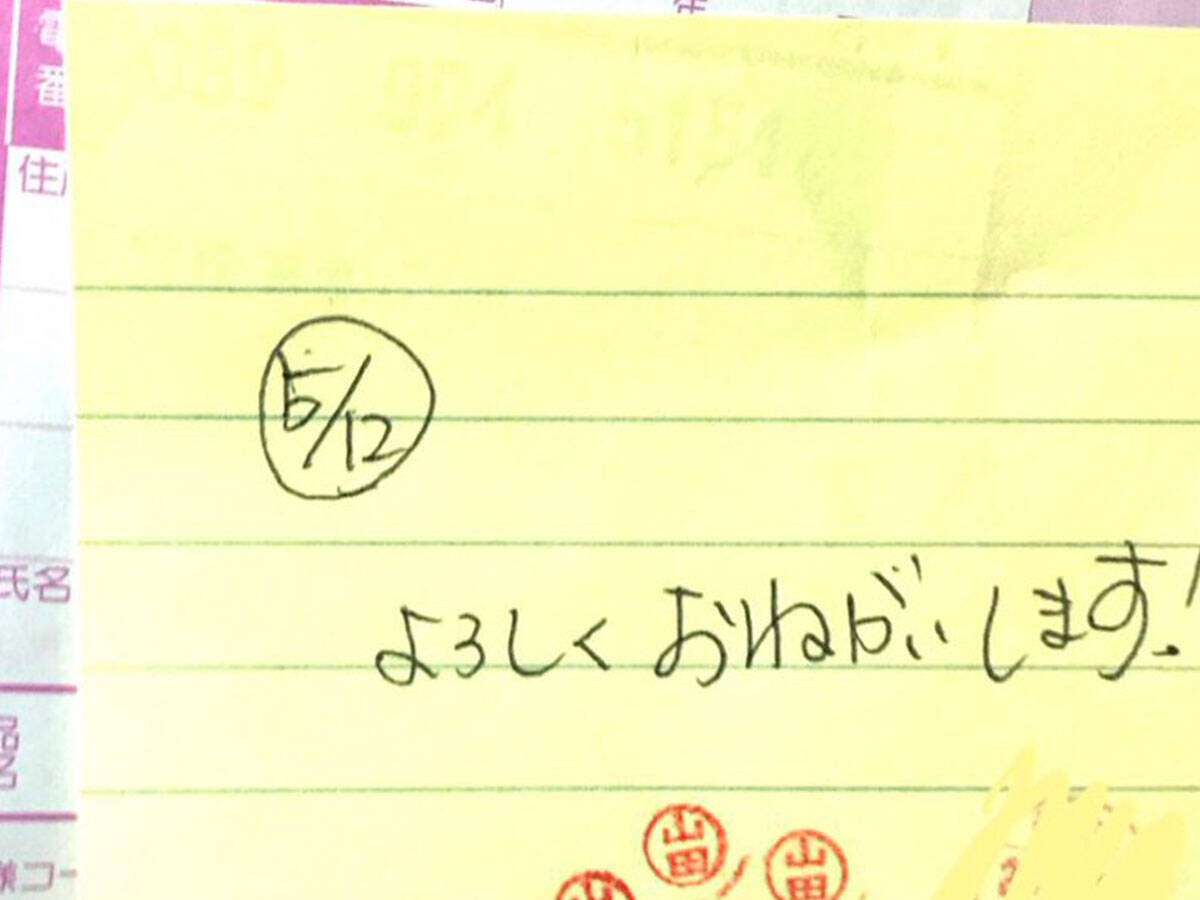 電
番
住
5/12
よろしくおねがいします!
氏名
品名
山田
山田
コー